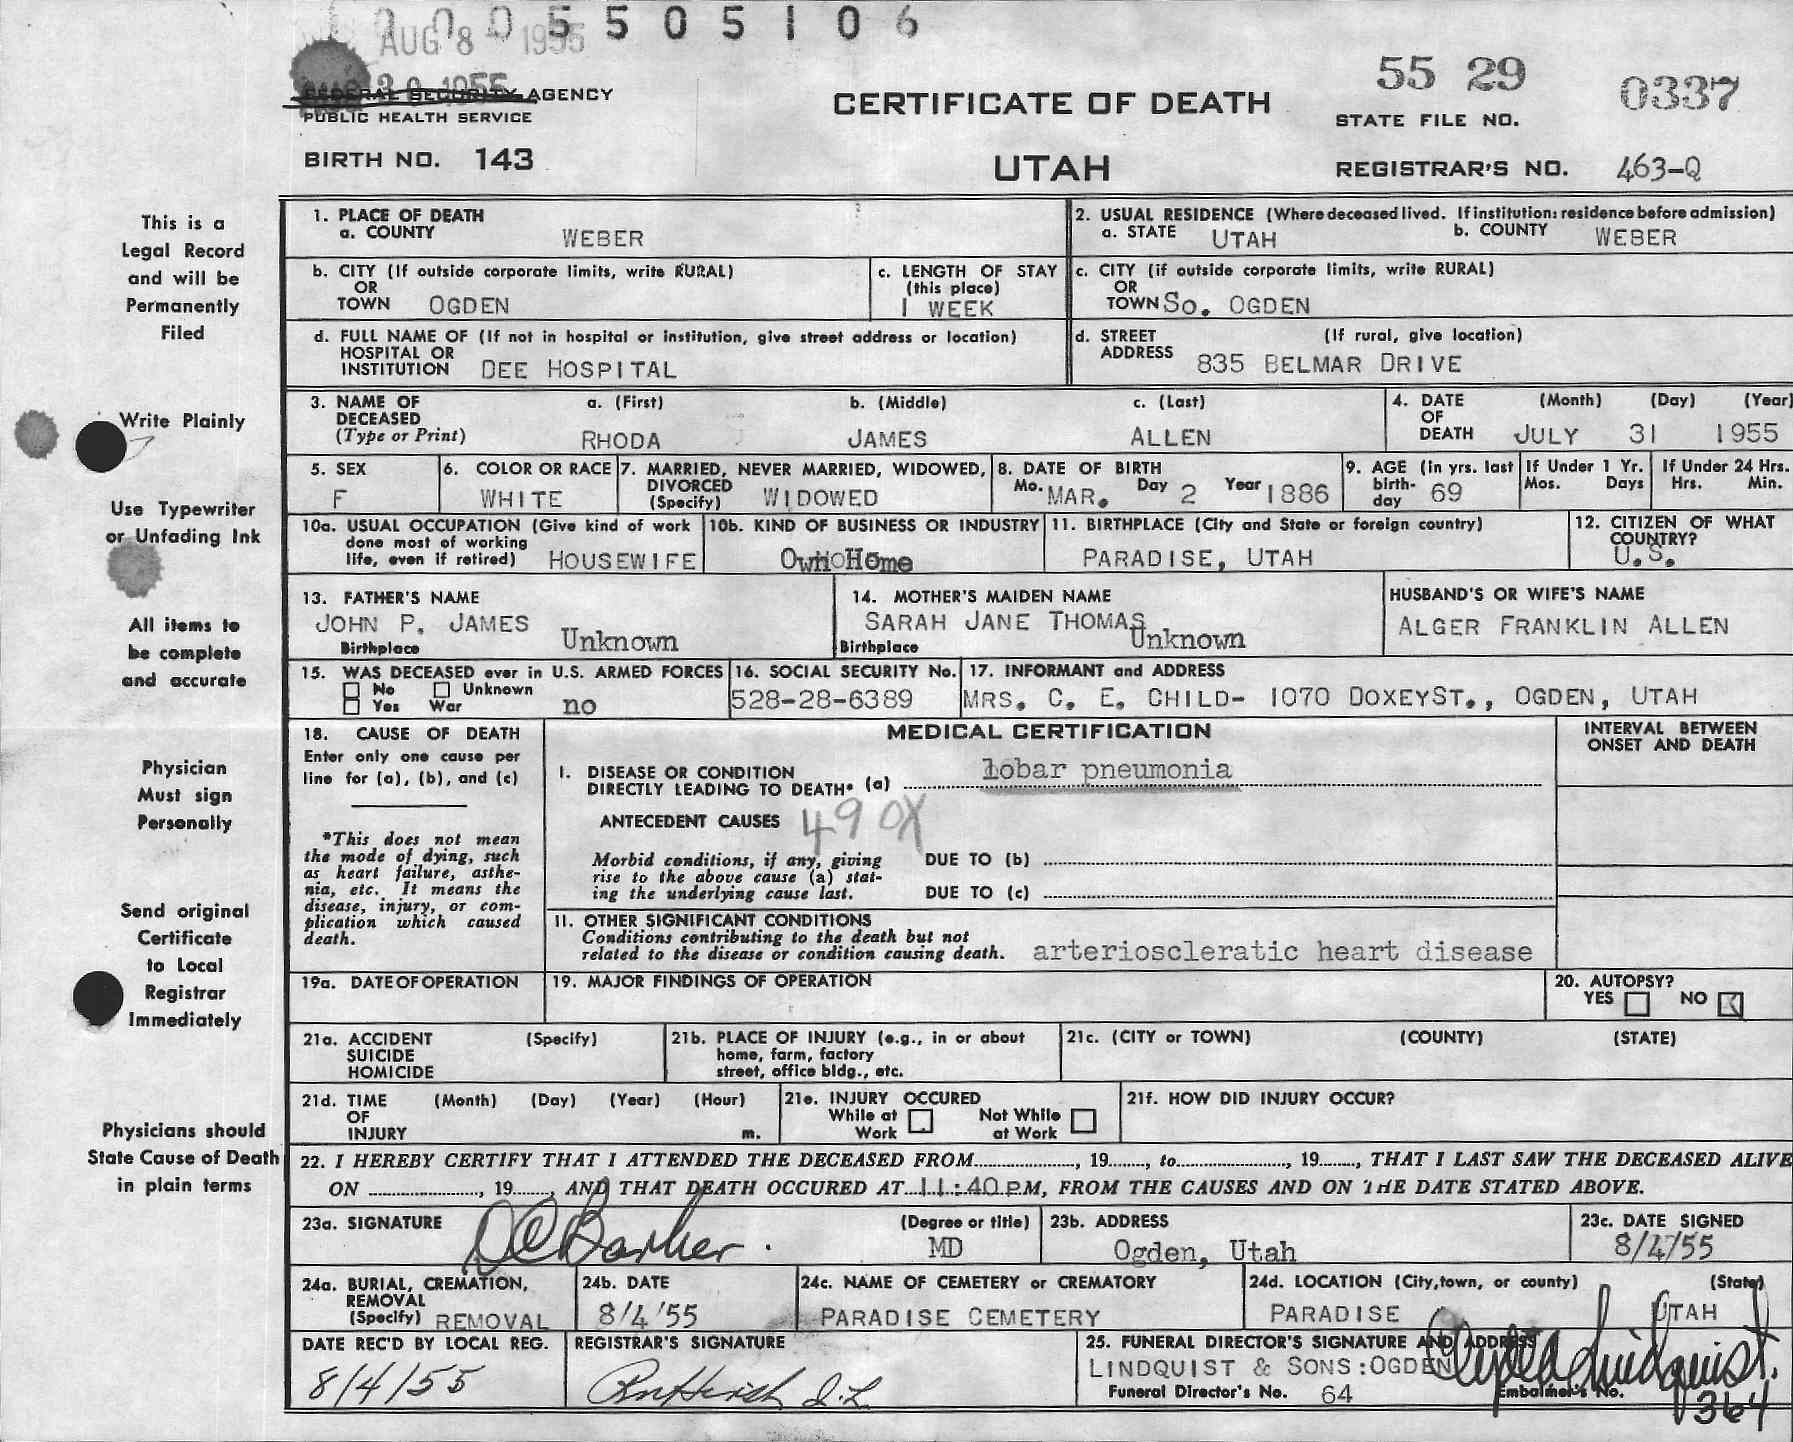 0 0 0 5 5 0 5 1 0 6
AUG 8 1955
1955
FEDERAL SECURITY AGENCY
PUBLIC HEALTH SERVICE
CERTIFICATE OF DEATH
55 29 0337
STATE FILE NO.
BIRTH NO. 143
UTAH
REGISTRAR'S NO. 463-Q
This is a
Legal Record
and will be
Permanently
Filed
Write Plainly
Use Typewriter
or Unfading Ink
All items to
be complete
and accurate
Physician
Must sign
Personally
Send original
Certificate
to Local
Registrar
Immediately
Physicians should
State Cause of Death
in plain terms
1. PLACE OF DEATH
a. COUNTY WEBER
2. USUAL RESIDENCE (Where deceased lived. If institution: residence before admission)
a. STATE UTAH b. COUNTY WEBER
b. CITY (If outside corporate limits, write RURAL)
OR
TOWN OGDEN
c. LENGTH OF STAY
(this place)
1 WEEK
c. CITY (if outside corporate limits, write RURAL)
OR
TOWN SO. OGDEN
d. FULL NAME OF (If not in hospital or institution, give street address or location)
HOSPITAL OR
INSTITUTION DEE HOSPITAL
d. STREET (If rural, give location)
ADDRESS 835 BELMAR DRIVE
3. NAME OF a. (First) b. (Middle) c. (Last)
DECEASED
(Type or Print) RHODA JAMES ALLEN
4. DATE (Month) (Day) (Year)
OF
DEATH JULY 31 1955
5. SEX
F
6. COLOR OR RACE
WHITE
7. MARRIED, NEVER MARRIED, WIDOWED,
DIVORCED
(Specify) WIDOWED
8. DATE OF BIRTH
Mo. MAR. Day 2 Year 1886
9. AGE (in yrs. last
birth-
day 69
If Under 1 Yr.
Mos. Days
If Under 24 Hrs.
Hrs. Min.
10a. USUAL OCCUPATION (Give kind of work
done most of working
life, even if retired) HOUSEWIFE
10b. KIND OF BUSINESS OR INDUSTRY
Own Home
11. BIRTHPLACE (City and State or foreign country)
PARADISE, UTAH
12. CITIZEN OF WHAT
COUNTRY?
U.S.
13. FATHER'S NAME
JOHN P. JAMES
Birthplace Unknown
14. MOTHER'S MAIDEN NAME
SARAH JANE THOMAS
Birthplace Unknown
HUSBAND'S OR WIFE'S NAME
ALGER FRANKLIN ALLEN
15. WAS DECEASED ever in U.S. ARMED FORCES
No Unknown
Yes War no
16. SOCIAL SECURITY No.
528-28-6389
17. INFORMANT and ADDRESS
MRS. C. E. CHILD- 1070 DOXEY ST., OGDEN, UTAH
18. CAUSE OF DEATH
Enter only one cause per
line for (a), (b), and (c)
*This does not mean
the mode of dying, such
as heart failure, asthe-
nia, etc. It means the
disease, injury, or com-
plication which caused
death.
MEDICAL CERTIFICATION
INTERVAL BETWEEN
ONSET AND DEATH
I. DISEASE OR CONDITION
DIRECTLY LEADING TO DEATH* (a) lobar pneumonia
ANTECEDENT CAUSES 490X
Morbid conditions, if any, giving
rise to the above cause (a) stat-
ing the underlying cause last.
DUE TO (b)
DUE TO (c)
II. OTHER SIGNIFICANT CONDITIONS
Conditions contributing to the death but not
related to the disease or condition causing death. arterioscleratic heart disease
19a. DATE OF OPERATION
19. MAJOR FINDINGS OF OPERATION
20. AUTOPSY?
YES NO
21a. ACCIDENT (Specify)
SUICIDE
HOMICIDE
21b. PLACE OF INJURY (e.g., in or about
home, farm, factory
street, office bldg., etc.
21c. (CITY or TOWN) (COUNTY) (STATE)
21d. TIME (Month) (Day) (Year) (Hour)
OF
INJURY m.
21e. INJURY OCCURED
While at Not While
Work at Work
21f. HOW DID INJURY OCCUR?
22. I HEREBY CERTIFY THAT I ATTENDED THE DECEASED FROM, 19, to, 19, THAT I LAST SAW THE DECEASED ALIVE
ON, 19, AND THAT DEATH OCCURED AT 11:40 P.M, FROM THE CAUSES AND ON THE DATE STATED ABOVE.
23a. SIGNATURE (Degree or title)
D C Barker MD
23b. ADDRESS
Ogden, Utah
23c. DATE SIGNED
8/4/55
24a. BURIAL, CREMATION,
REMOVAL
(Specify) REMOVAL
24b. DATE
8/4/'55
24c. NAME OF CEMETERY or CREMATORY
PARADISE CEMETERY
24d. LOCATION (City, town, or county) (State)
PARADISE UTAH
DATE REC'D BY LOCAL REG.
8/4/55
REGISTRAR'S SIGNATURE
25. FUNERAL DIRECTOR'S SIGNATURE AND ADDRESS
LINDQUIST & SONS: OGDEN
Lindquist.
Funeral Director's No. 64 Embalmer's No. 364